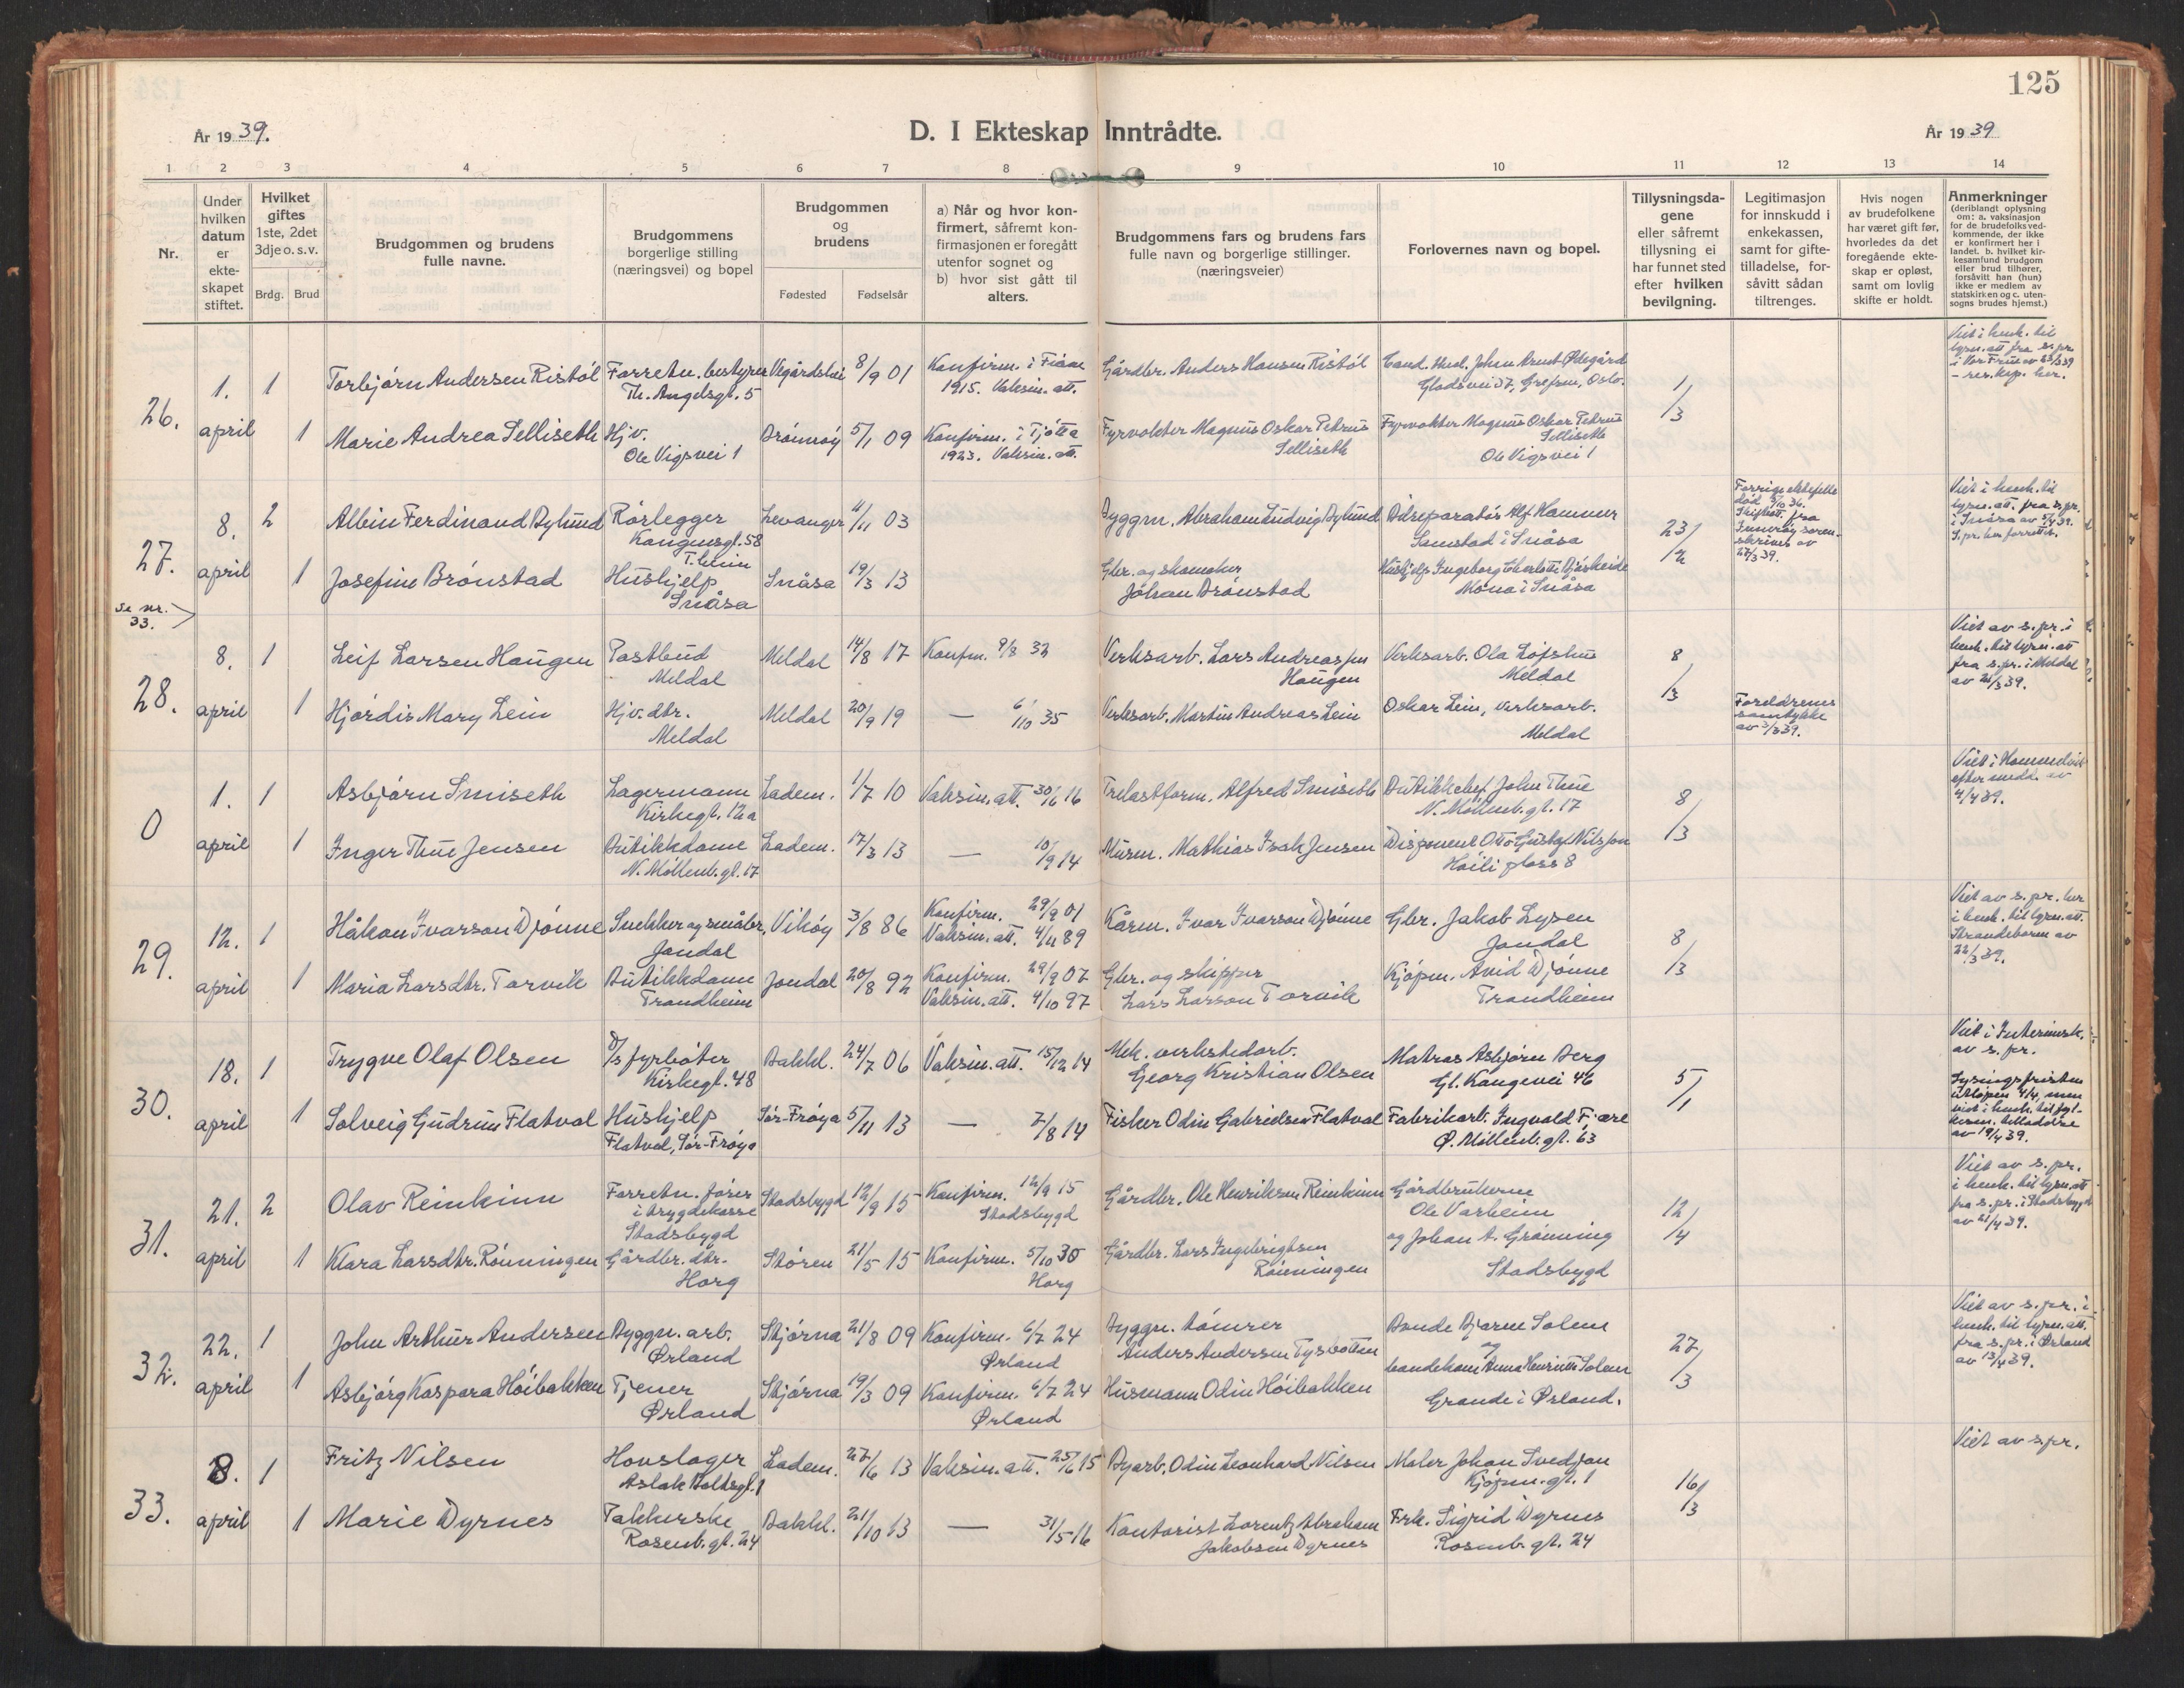 125
År 1939.
D. I Ekteskap Inntrådte.
År 1939
1 2 3 4 5 6 7 8 9 10 11 12 13 14
Nr.
Under hvilken datum er ekte-skapet stiftet.
Hvilket giftes 1ste, 2det 3dje o. s. v.
Brdg. Brud
Brudgommen og brudens fulle navne.
Brudgommens borgerlige stilling (næringsvei) og bopel
Brudgommen og brudens
Fødested Fødselsår
a) Når og hvor kon-firmert, såfremt kon-firmasjonen er foregått utenfor sognet og b) hvor sist gått til alters.
Brudgommens fars og brudens fars fulle navn og borgerlige stillinger. (næringsveier)
Forlovernes navn og bopel.
Tillysningsda-gene eller såfremt tillysning ei har funnet sted efter hvilken bevilgning.
Legitimasjon for innskudd i enkekassen, samt for gifte-tilladelse, for-såvitt sådan tiltrenges.
Hvis nogen av brudefolkene har været gift før, hvorledes da det foregående ekte-skap er opløst, samt om lovlig skifte er holdt.
Anmerkninger (deriblandt oplysning om: a. vaksinasjon for de brudefolks ved-kommende, der ikke er konfirmert her i landet. b. hvilket kir-kesamfund brudgom eller brud tilhører, forsåvitt han (hun) ikke er medlem av statskirken og c. uten-sogns brudes hjemst.)
26. 1. april 1 Torbjørn Andersen Ristøl Forretn. bestyrer Th. Angelsgt. 5 Vegårdshei 8/9 01 Konfirm. i Fiane 1915. Vaksin. att. Gårdbr. Anders Hansen Ristøl Cand. theol. Johan Arnt Ødegård Gladsvei 37, Grefsen, Oslo. 1/3
1 Marie Andrea Selliseth Hjv. Ole Vigsvei 1 Brönnöy 5/1 09 Konfirm. i Tjøtta 1923. Vaksin. att. Fyrvokter Magnus Oskar Petrus Selliseth Fyrvokter Magnus Oskar Petrus Selliseth Ole Vigsvei 1
27. 8. april 2 Albin Ferdinand Bylund Rørlegger Kongensgt. 58 T.heim Levanger 4/11 03 Byggm. Abraham Ludvig Bylund Bilreparatør Alf Hammer Samstad i Snåsa 23/2
1 Josefine Brønstad Hushjelp Snåsa Snåsa 19/3 13 Gbr. og skomaker Johan Brønstad Mona i Snåsa
Se nr. 33.
28. 8. april 1 Leif Larsen Haugen Postbud Meldal Meldal 14/8 17 Konfm. 9/8 32 Verksarb. Lars Andreassen Haugen Verksarb. Ola Løfshus Meldal 8/3 Viet av s.pr. i henh. til lysn. att fra s.pr. i Meldal av 24/3 39.
1 Hjördis Mary Lein Hjv. dtr. Meldal Meldal 20/9 19 — 6/10 35 Verksarb. Martin Andreas Lein Oskar Lein, verksarb. Meldal Foreldrenes samtykke av 3/3 39.
0 1. april 1 Asbjørn Smiseth Lagermann Kirkegt. 12a Ladem. 1/7 10 Vaksin. att. 30/6 16 Trelastform. Alfred Smiseth Butikkchef John Thue N. Møllenb. gt. 17 8/3 Viet i Hommelvik efter medd. av 4/4 39.
1 Inger Thue Jensen Butikkdame N. Møllenb. gt. 17 Ladem. 17/3 13 — 10/9 14 Murm. Mathias Isak Jensen Disponent Otto Gustaf Nilsson
29. 12. april 1 Håkon Ivarson Djønne Snekker og småbr. Jondal Vikøy 3/8 86 Konfirm. 29/9 01 Vaksin. att. 4/11 89 Kårm. Ivar Ivarson Djønne Gbr. Jakob Lysen Jondal 8/3 Viet av s.pr. her i henh. til lysn. att. Strandebarm av 22/3 39.
1 Maria Larsdtr. Torvik Butikkdame Trondheim Jondal 20/8 92 Konfirm. 29/9 07 Vaksin. att. 4/10 97 Gbr. og skipper Lars Larson Torvik Kjøpm. Arvid Djønne Trondheim
30. 18. april 1 Trygve Olaf Olsen D/s fyrbøter Kirkegt. 48 Bakkl. 24/7 06 Vaksin. att. 15/12 14 Mek. verkstedarb. Georg Kristian Olsen Matros Asbjørn Berg Gl. Kongevei 46 5/1 Viet i Interimsk. av s.pr.
1 Solveig Gudrun Flatval Hushjelp Flatval, Sør-Frøya Sør-Frøya 5/11 13 — 7/8 14 Fisker Odin Gabrielsen Flatval Fabrikarb. Ingvald Fjære Ø. Møllenb. gt. 63 Lysingsfristen utløpen 4/4, men viet i henh. til fyl-kesm. tilladelse av 19/4 39.
31. 21. april 2 Olav Reinkinn Forretn. fører i trygdekasse Stadsbygd Stadsbygd 12/9 15 Konfirm. 12/9 15 Stadsbygd Gårdbr. Ole Henriksen Reinkinn Gårdbrukerne Ole Varheim 12/4 Viet av s.pr. i henh. til lysn. att fra s.pr. i Stadsbygd av 21/4 39.
1 Klara Larsdtr. Rönningen Gårdbr. dtr. Horg Støren 21/5 15 Konfirm. 5/10 30 Horg Gårdbr. Lars Ingebrigtsen Rönningen og Johan A. Grønning Stadsbygd
32. 22. april 1 John Arthur Andersen Byggn. arb. Ørland Stjørna 21/8 09 Konfirm. 6/7 24 Ørland Byggn. tømrer Anders Andersen Bonde Bjarne Solem og 27/3 Viet av s.pr. i henh. til lysn. att. fra s.pr. i Ørland av 13/4 39.
1 Asbjørg Kaspara Høibakken Tjener Ørland Stjørna 19/3 09 Konfirm. 6/7 24 Ørland Husmann Odin Høibakken bondekone Anna Henriette Solem Grande i Ørland.
33. 8. april 1 Fritz Nilsen Hovslager Aslak Boltsgt. 1 Ladem. 27/6 13 Vaksin. att. 25/6 15 Byarb. Odin Leonhard Nilsen Maler Johan Svedjan Kjøpm. gt. 1 16/3 Viet av s.pr.
1 Marie Dyrnes Pakkerske Rosenb. gt. 24 Bakkl. 21/10 13 — 31/5 16 Kontorist Lorentz Abraham Jakobsen Dyrnes Frk. Sigrid Dyrnes Rosenb. gt. 24